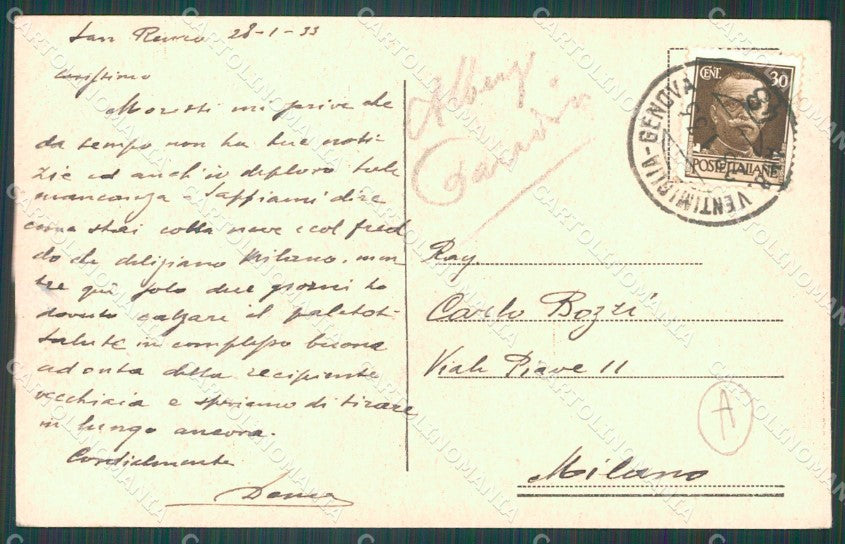 San Remo 28-1-33
Carissimo
Moretti mi scrive che
da tempo non ha tue noti-
zie ed anch'io deploro tale
mancanza. Sappiami dire
come stai colla neve e col fred
do che deliziano Milano. men
tre qui solo due giorni ho
dovuto calzare il paletot.
Salute in complesso buona
ad onta della recipiente
vecchiaia e speriamo di tirare
in lungo ancora.
Cordialmente
Alberg
CENT. 30
POSTE ITALIANE
VENTIMIGLIA-GENOVA
Rag.
Carlo Bozzi
Viale Piave 11
Milano
A
CARTOLINOMANIA